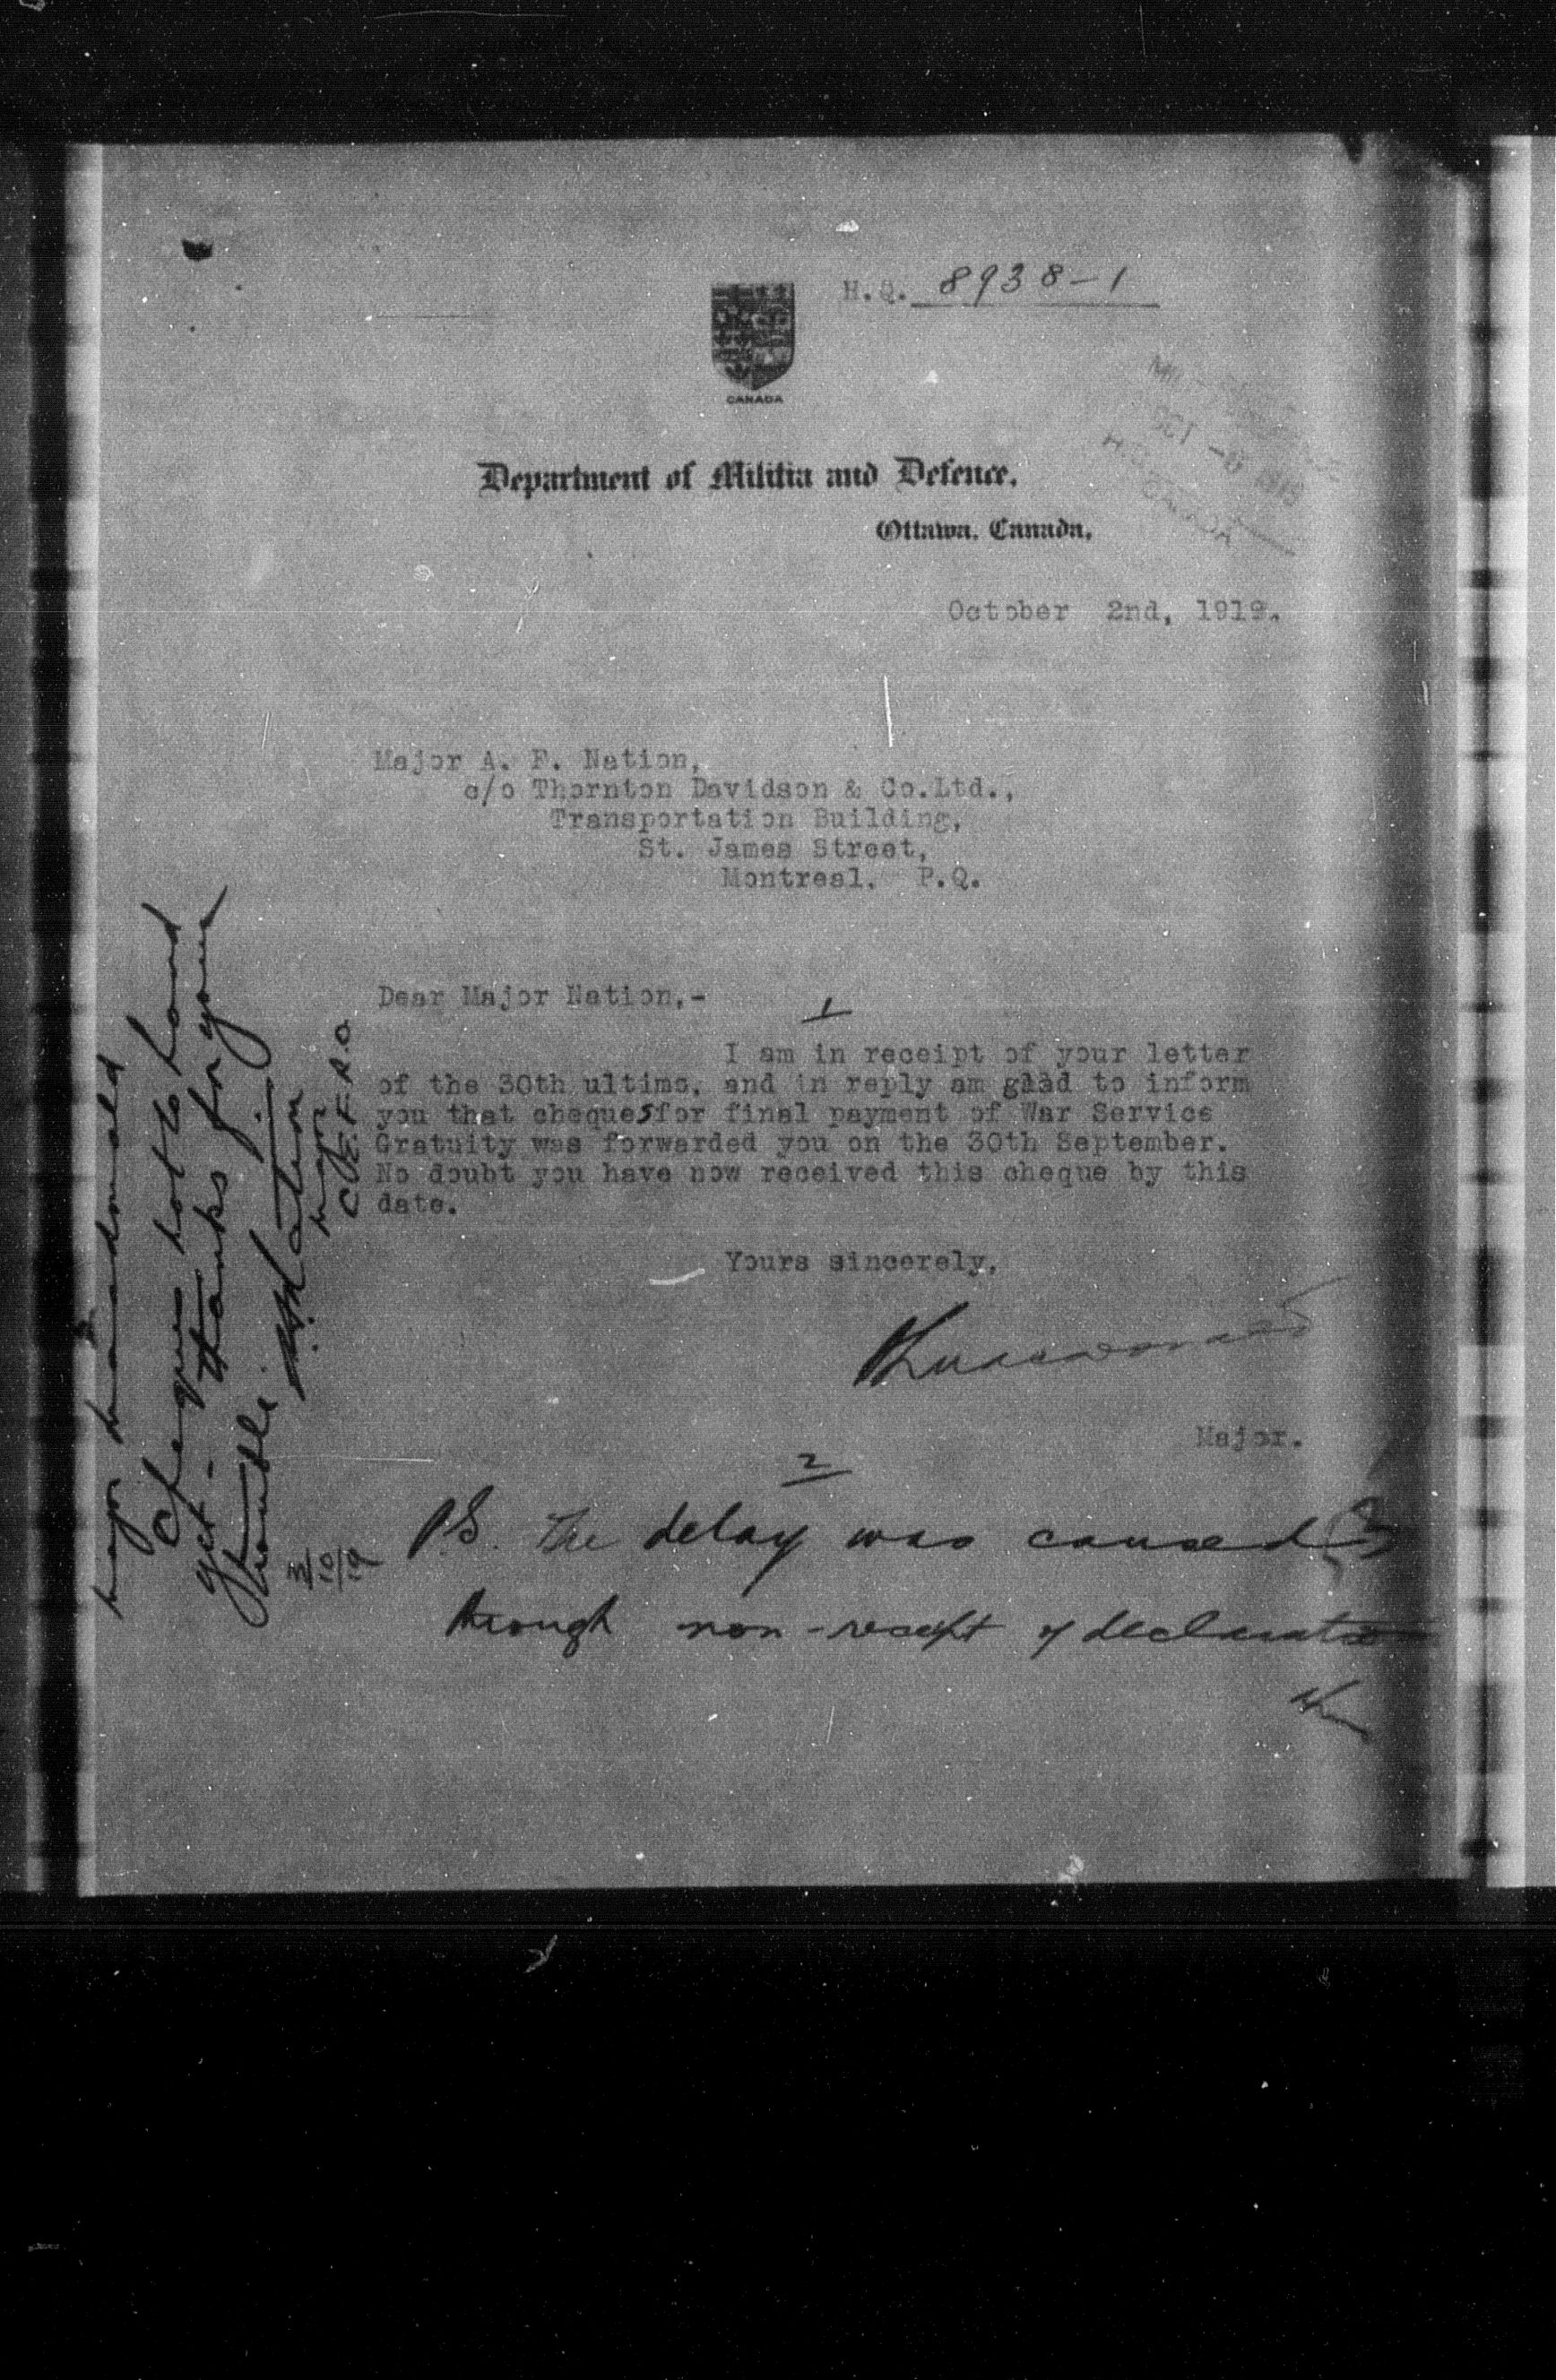 H.Q. 8938-1
CANADA
OCT -6 1919
H.Q.
CANADA
Department of Militia and Defence.
Ottawa, Canada,
October 2nd, 1919.
Major A. F. Nation,
c/o Thornton Davidson & Co.Ltd.,
Transportation Building,
St. James Street,
Montreal, P.Q.
Dear Major Nation,-
1
I am in receipt of your letter
of the 30th ultimo, and in reply am glad to inform
you that cheques for final payment of War Service
Gratuity was forwarded you on the 30th September.
No doubt you have now received this cheque by this
date.
Yours sincerely,
Major.
2
P.S. The delay was caused
through non-receipt of declaration
Major Macdonald
Cheque not to hand
yet - thanks for your
trouble.
Nation
Major
C.E.F. R.O.